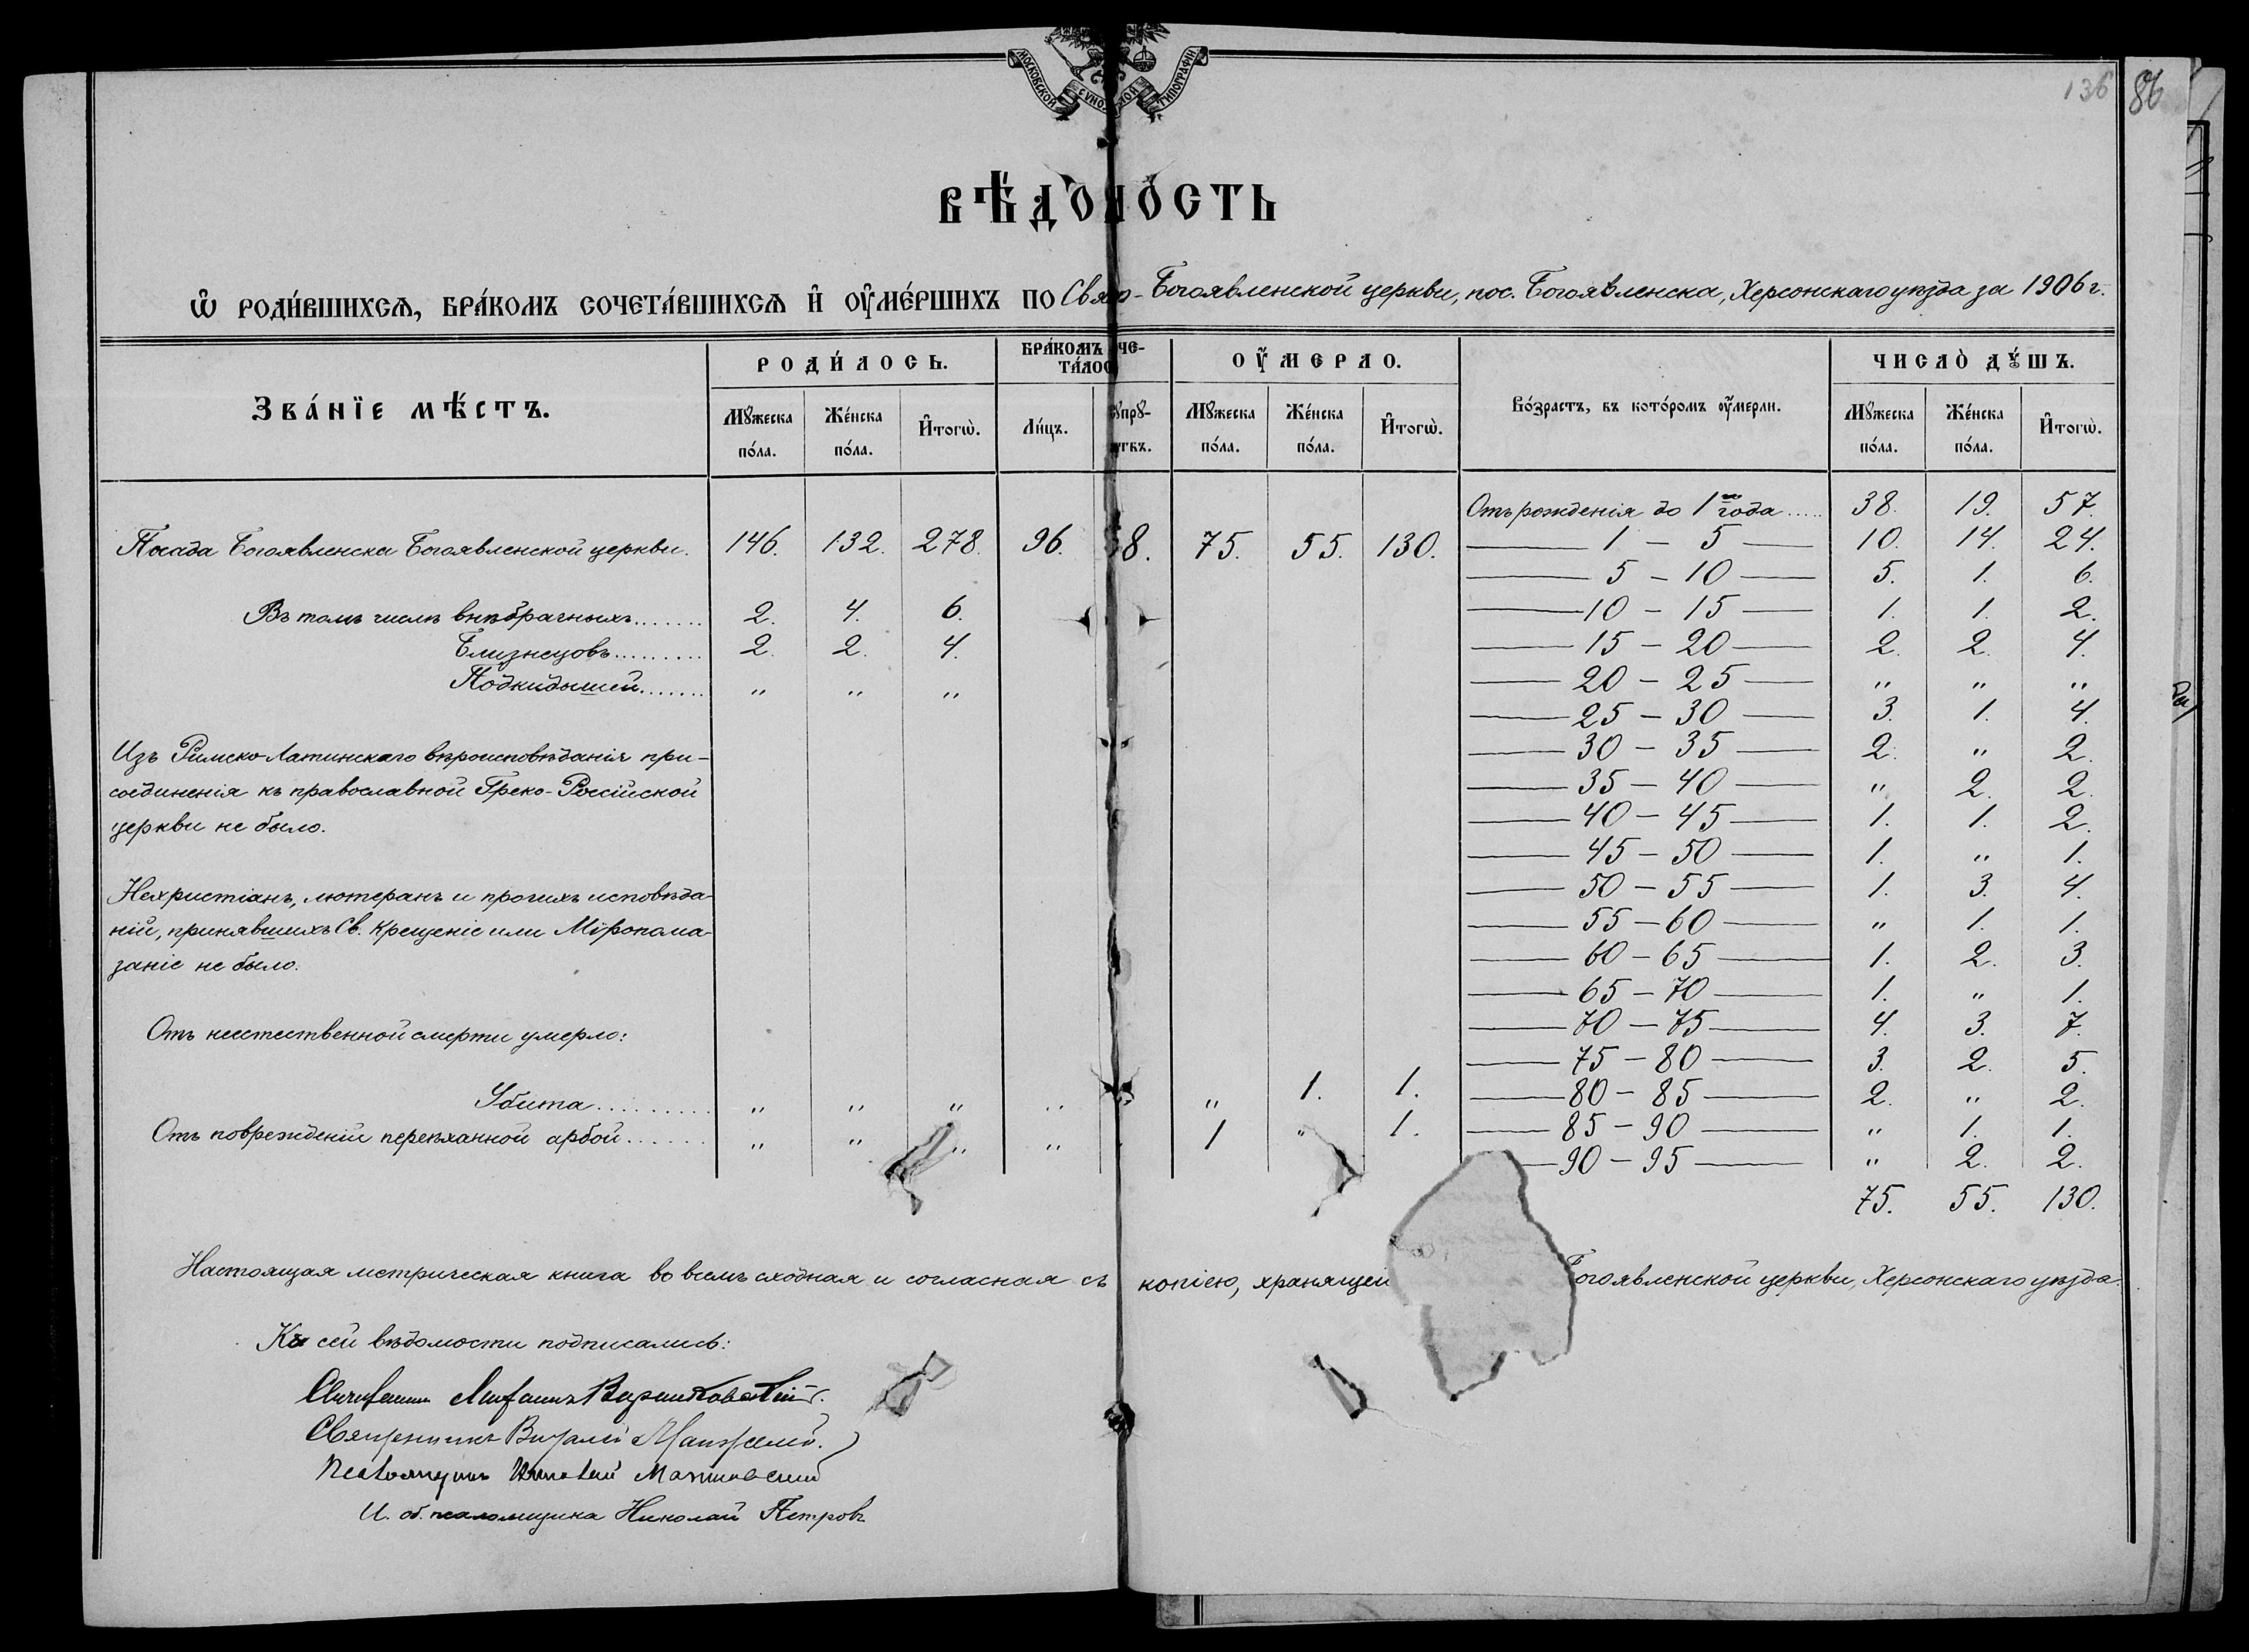 МОСКОВСКОЙ СѴНОДАЛЬНОЙ ТИПОГРАФІИ
136 86
ВѢ́ДОМОСТЬ
Ѡ҆ РОДИ́ВШИХСѦ, БРА́КОМЪ СОЧЕТА́ВШИХСѦ И҆ ОУ҆МЕ́РШИХЪ ПО Свято-Богоявленской церкви, пос. Богоявленска, Херсонскаго уѣзда за 1906 г.
ЗВА́НЇЕ МѢ́СТЪ. РОДИ́ЛОСЬ. БРА́КОМЪ СОЧЕ- ОУ҆́МЕРЛО. Во́зрастъ, въ кото́ромъ оу҆́мерли. ЧИСЛО̀ ДꙊ́ШЪ.
ТА́ЛОСЬ
Мꙋ́жеска по́ла. Же́нска по́ла. И҆тогѡ̀. Ли́цъ. Сꙋпрꙋ́-гвъ. Мꙋ́жеска по́ла. Же́нска по́ла. И҆тогѡ̀. Мꙋ́жеска по́ла. Же́нска по́ла. И҆тогѡ̀.
Отъ рожденія до 1го года..... 38. 19. 57.
Посада Богоявленска Богоявленской церкви. 146. 132. 278. 96. 8. 75. 55. 130. — 1 – 5 — 10. 14. 24.
— 5 – 10 — 5. 1. 6.
Въ томъ числѣ внѣбрачныхъ....... 2. 4. 6. — 10 – 15 — 1. 1. 2.
Близнецовъ......... 2. 2. 4. — 15 – 20 — 2. 2. 4.
Подкидышей....... „ „ „ — 20 – 25 — „ „ „
— 25 – 30 — 3. 1. 4.
Изъ Римско-Латинскаго вѣроисповѣданія при- — 30 – 35 — 2. „ 2.
соединенія къ православной Греко-Россійской — 35 – 40 — „ 2. 2.
церкви не было. — 40 – 45 — 1. 1. 2.
— 45 – 50 — 1. „ 1.
Нехристіанъ, лютеранъ и прочихъ исповѣда- — 50 – 55 — 1. 3. 4.
ній, принявшихъ Св. Крещеніе или Мѵропома- — 55 – 60 — „ 1. 1.
заніе не было. — 60 – 65 — 1. 2. 3.
— 65 – 70 — 1. „ 1.
Отъ неестественной смерти умерло: — 70 – 75 — 4. 3. 7.
— 75 – 80 — 3. 2. 5.
Убита.......... „ „ „ „ „ 1. 1. — 80 – 85 — 2. „ 2.
Отъ поврежденій переѣханной арбой....... „ „ „ „ 1 „ 1. — 85 – 90 — „ 1. 1.
— 90 – 95 — „ 2. 2.
75. 55. 130.
Настоящая метрическая книга во всемъ сходная и согласная съ копіею, хранящей Богоявленской церкви, Херсонскаго уѣзда.
Къ сей вѣдомости подписались:
Священникъ
Священникъ Виталій
Псаломщикъ
И. об. псаломщика Николай Петровъ